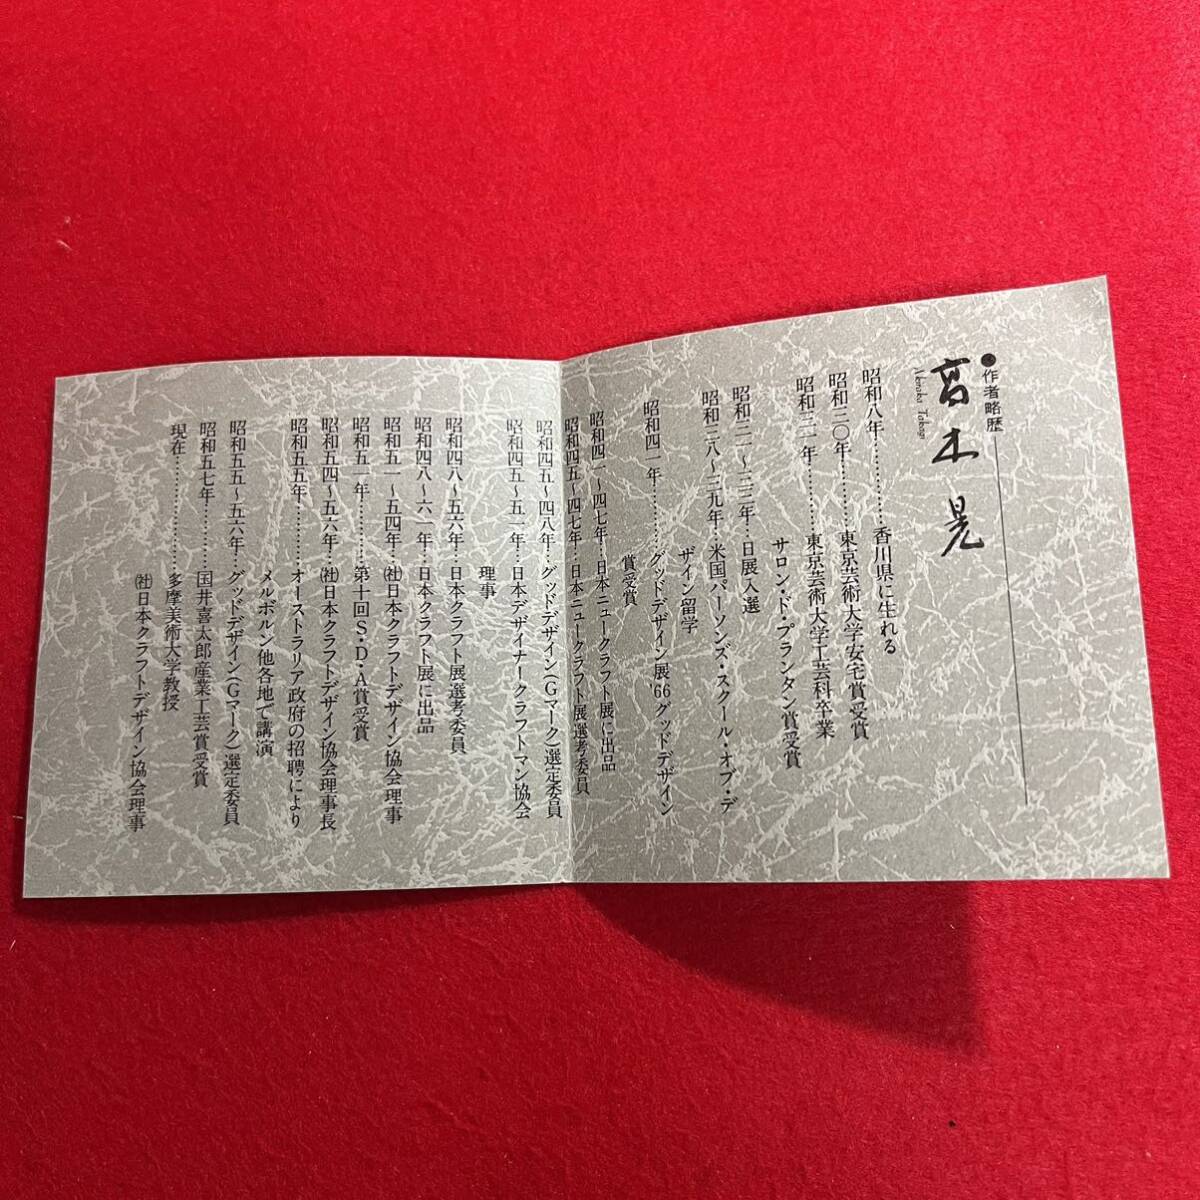 ●作者略歴
高木晃
Akira Takagi
昭和八年…………香川県に生れる
昭和三〇年………東京芸術大学安宅賞受賞
昭和三一年………東京芸術大学工芸科卒業
サロン・ド・プランタン賞受賞
昭和三一〜三三年…日展入選
昭和三八〜三九年…米国パーソンズ・スクール・オブ・デ
ザイン留学
昭和四一年………グッドデザイン展'66グッドデザイン
賞受賞
昭和四一〜四七年…日本ニュークラフト展に出品
昭和四五〜四七年…日本ニュークラフト展選考委員
昭和四五〜四八年…グッドデザイン(Gマーク)選定委員
昭和四五〜五一年…日本デザイナークラフトマン協会
理事
昭和四八〜五六年…日本クラフト展選考委員
昭和四八〜六一年…日本クラフト展に出品
昭和五一〜五四年…㈳日本クラフトデザイン協会理事
昭和五一年………第十回S・D・A賞受賞
昭和五四〜五六年…㈳日本クラフトデザイン協会理事長
昭和五五年…………オーストラリア政府の招聘により
メルボルン他各地で講演
昭和五五〜五六年…グッドデザイン(Gマーク)選定委員
昭和五七年…………国井喜太郎産業工芸賞受賞
現在………………多摩美術大学教授
㈳日本クラフトデザイン協会理事